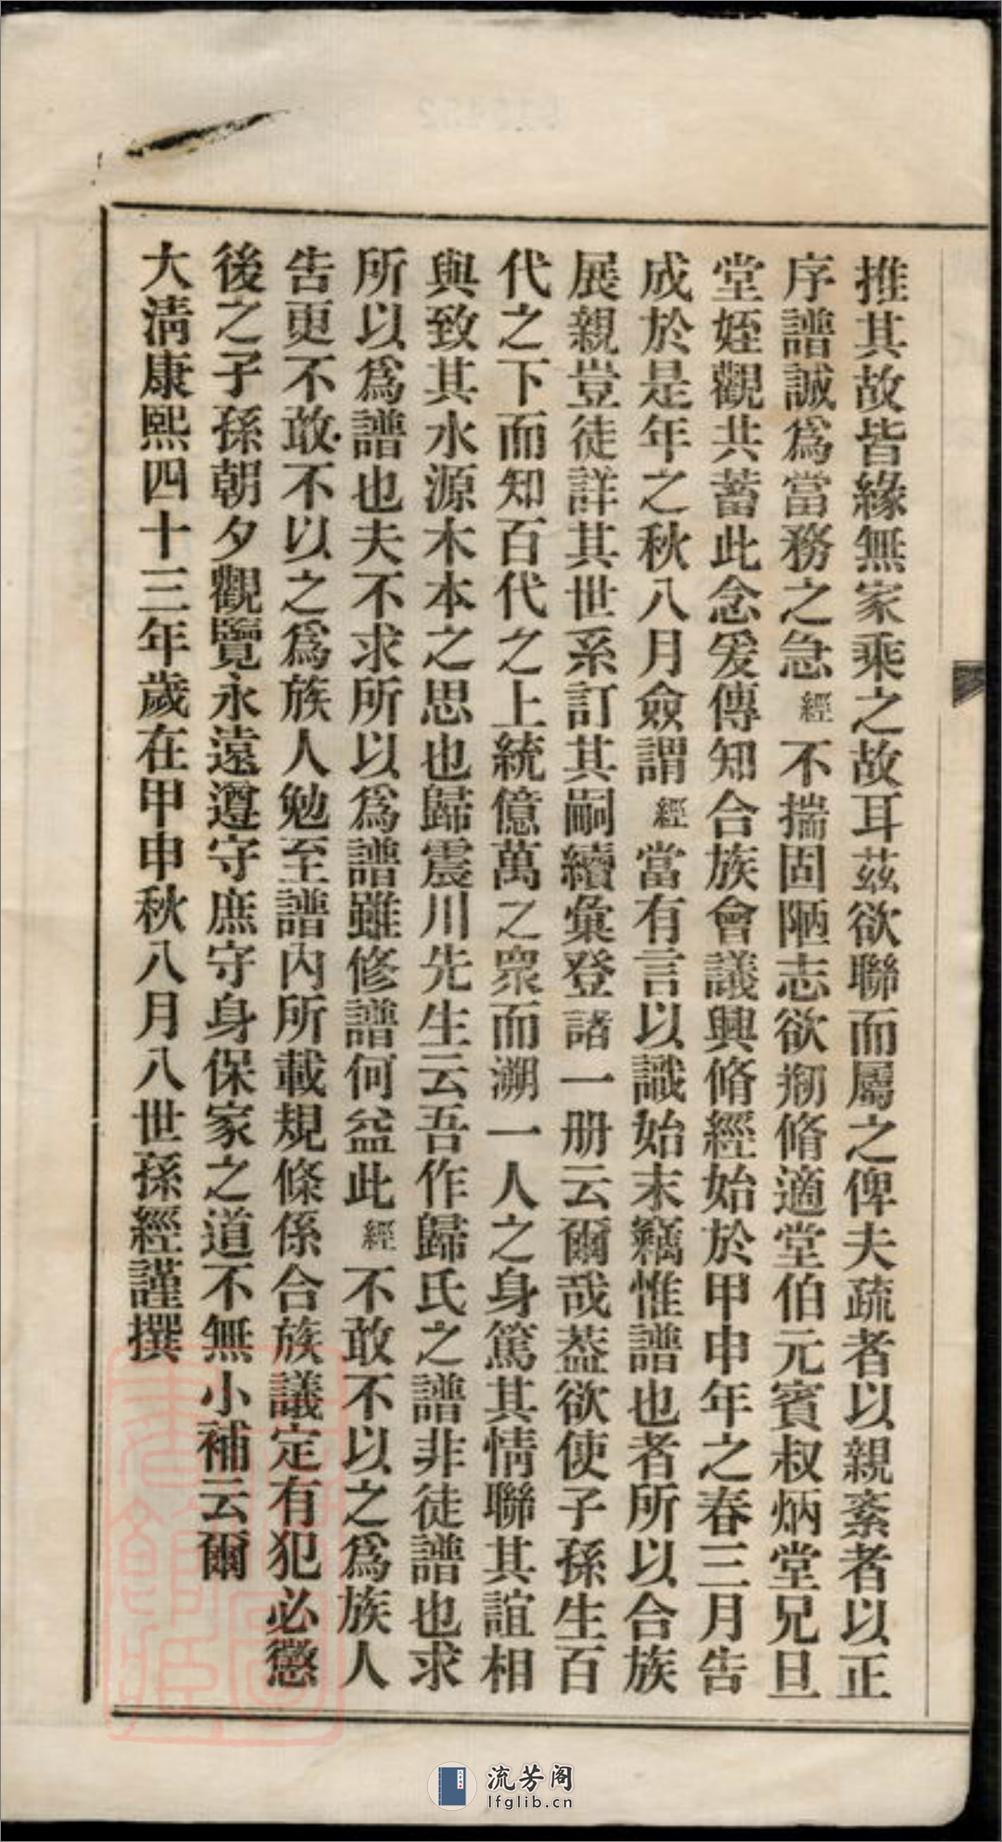 推其故皆緣無家乘之故耳茲欲聯而屬之俾夫疏者以親紊者以正
序譜誠爲當務之急經不揣固陋志欲刱脩適堂伯元賓叔炳堂兄旦
堂姪觀共蓄此念爰傳知合族會議興脩經始於甲申年之春三月告
成於是年之秋八月僉謂經當有言以識始末竊惟譜也者所以合族
展親豈徒詳其世系訂其嗣續彙登諸一册云爾哉葢欲使子孫生百
代之下而知百代之上統億萬之衆而溯一人之身篤其情聯其誼相
與致其水源木本之思也歸震川先生云吾作歸氏之譜非徒譜也求
所以爲譜也夫不求所以爲譜雖修譜何益此經不敢不以之爲族人
告更不敢不以之爲族人勉至譜內所載規條係合族議定有犯必懲
後之子孫朝夕觀覽永遠遵守庶守身保家之道不無小補云爾
大淸康熙四十三年歲在甲申秋八月八世孫經謹撰
流芳阁
lfglib.cn